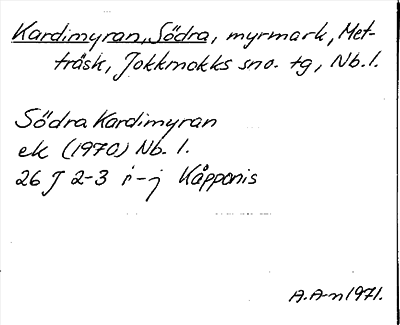 Kardimyran, Södra, myrmark, Met-
träsk, Jokkmokks sno. tg, Nb. l.
Södra Kardimyran
ek (1970) Nb. l.
26 J 2-3 i-j Kåpponis
A.A-n 1971.